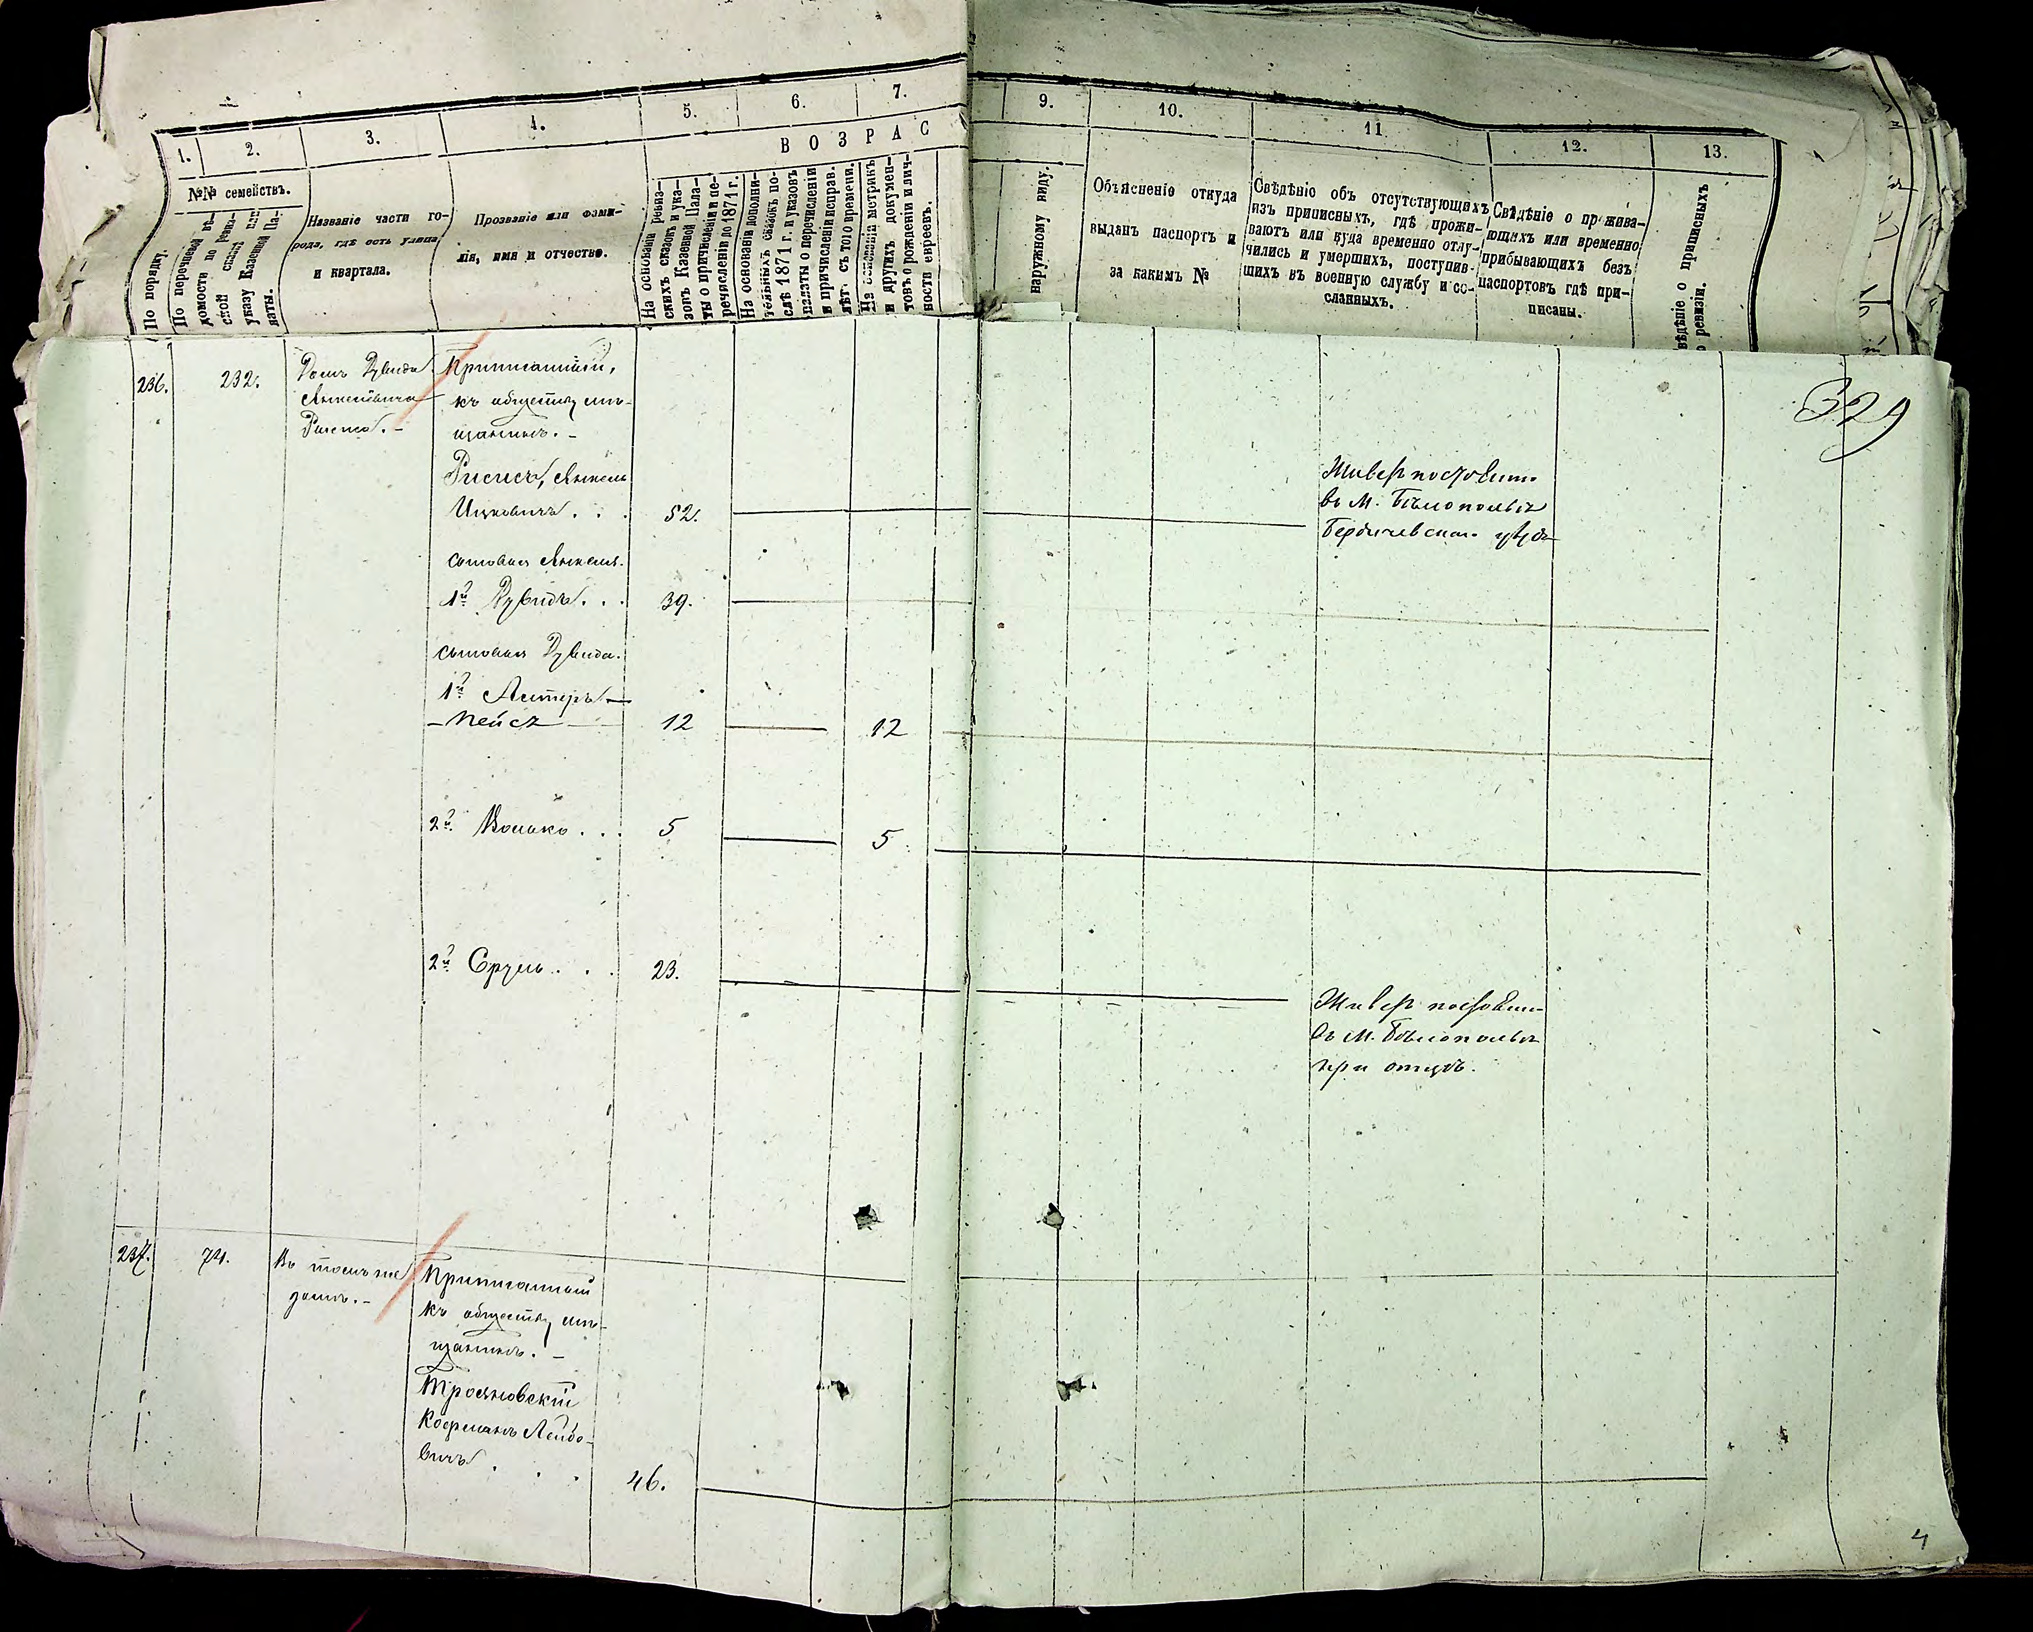 1.
2.
3.
4.
5.
6.
7.
9.
10.
11.
12.
13.
В О З Р А С
№№ семействъ.
По порядку.
По перечневой вѣ-
домости по реви-
ской сказкѣ или
указу Казенной Па-
латы.
Названіе части го-
рода, гдѣ есть улица
и квартала.
Прозваніе или фами-
лія, имя и отчество.
На основаніи ревиз-
скихъ сказокъ и ука-
зовъ Казенной Пала-
ты о причисленіи и пе-
речисленіи до 1871 г.
На основаніи дополни-
тельныхъ сказокъ по-
слѣ 1871 г. и указовъ
палаты о перечисленіи
и причисленіи исправ.
лѣт. съ того времени.
На основаніи метрикъ
и другихъ докумен-
товъ о рожденіи и лич-
ности евреевъ.
наружному виду.
Объясненіе откуда
выданъ паспортъ и
за какимъ №
Свѣдѣніе объ отсутствующихъ
изъ приписныхъ, гдѣ прожи-
ваютъ или куда временно отлу-
чились и умершихъ, поступив-
шихъ въ военную службу и со-
сланныхъ.
Свѣдѣніе о прожива-
ющихъ или временно
прибывающихъ безъ
паспортовъ гдѣ при-
писаны.
вѣдѣніе о приписныхъ
о ревизіи.
329
236.
232.
Домъ Дувида
Янкелевича
Приписанный,
къ обществу мѣ-
щанинъ. -
Янкель
Ицковичъ . . .
52.
Живетъ постоянн.
въ М. Бѣлопольѣ
Бердичевскаго уѣзда
сыновья Янкеля.
1й Дувидъ . . .
39.
сыновья Дувида.
1й
- Пейсъ
12
12
2й Волько . . .
5
5
2й Сруль . . .
23.
Живетъ постоянн-
въ М. Бѣлопольѣ
при отцѣ.
237.
74.
Въ томъ же
домѣ. -
Приписанный
къ обществу мѣ-
щанинъ. -
Трояновскій
Кофманъ Лейбо-
вичъ . . .
46.
4